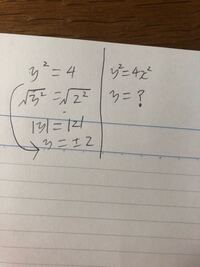 y² = 4
√y² = √2²
|y| = |2|
y = ±2
y² = 4x²
y = ?